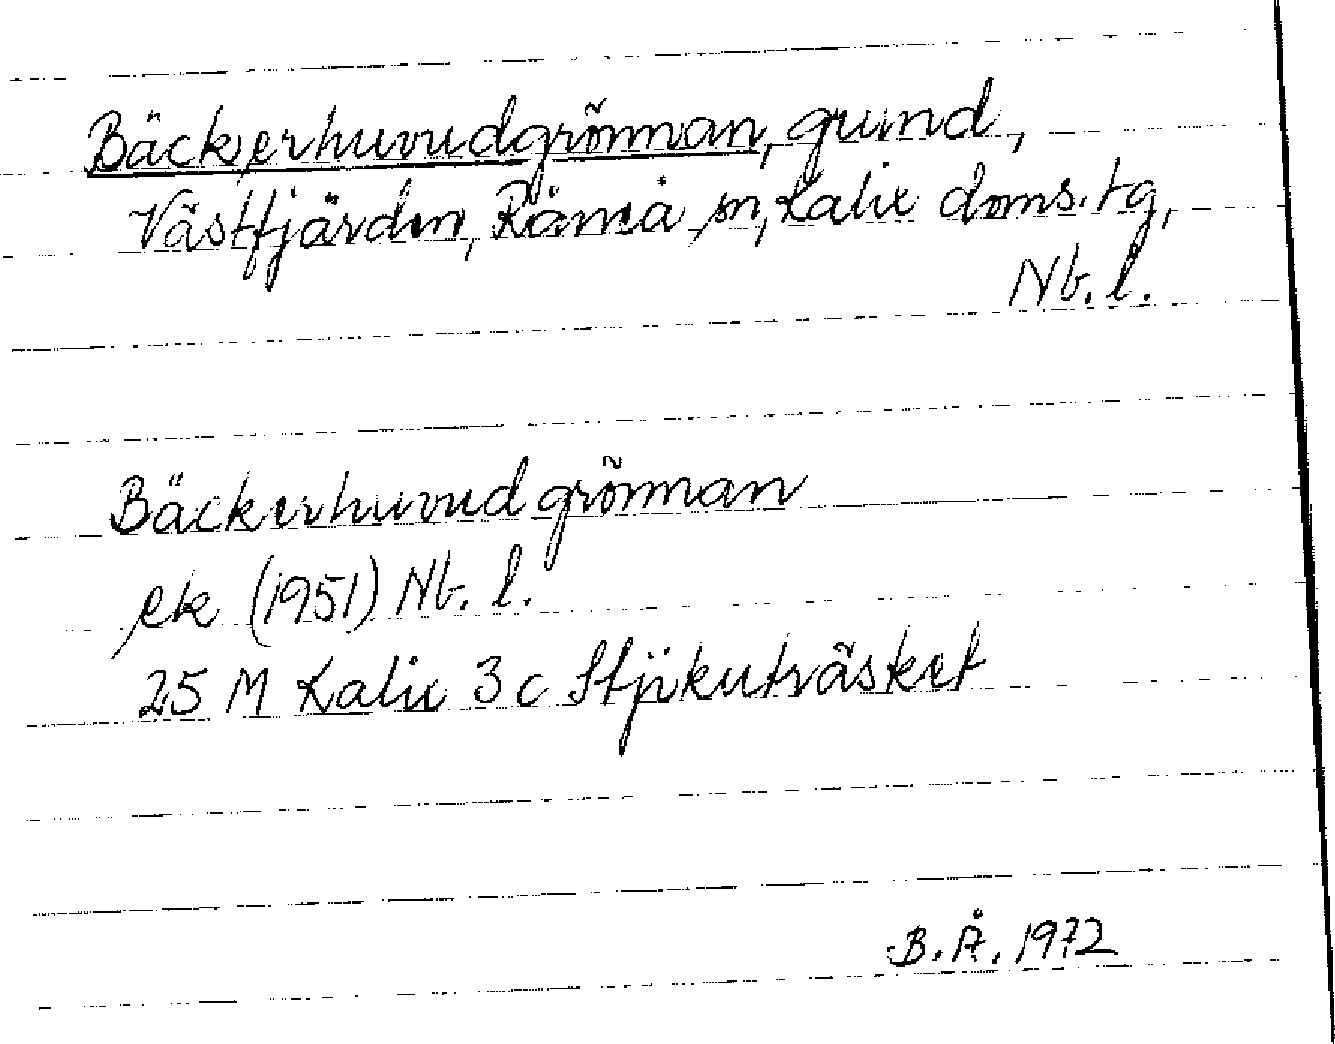 Bäckerhuvudgrönnan, grund,
Västfjärden, Råneå sn, Kalix doms.tg,
Nb. l.
Bäckerhuvudgrönnan
ek (1951) Nb. l.
25 M Kalix 3 c Stjikuträsket
B.Å. 1972